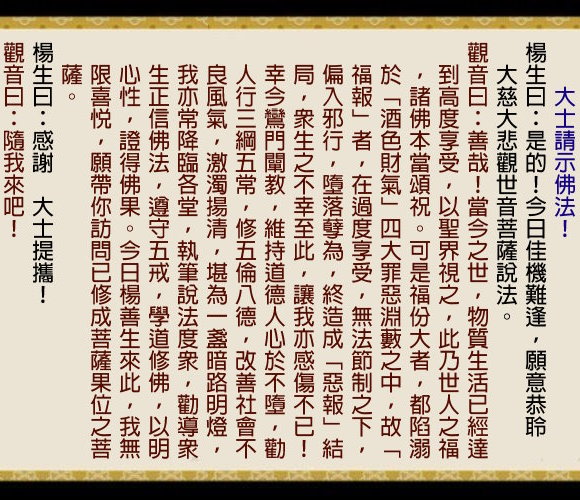 大士請示佛法！
楊生曰：是的！今日佳機難逢，願意恭聆
大慈大悲觀世音菩薩說法。
觀音曰：善哉！當今之世，物質生活已經達
到高度享受，以聖界視之，此乃世人之福
，諸佛本當頌祝。可是福份大者，都陷溺
於「酒色財氣」四大罪惡淵藪之中，故「
福報」者，在過度享受，無法節制之下，
偏入邪行，墮落孽為，終造成「惡報」結
局，眾生之不幸至此，讓我亦感傷不已！
幸今鸞門闡教，維持道德人心於不墮，勸
人行三綱五常，修五倫八德，改善社會不
良風氣，激濁揚清，堪為一盞暗路明燈，
我亦常降臨各堂，執筆說法度眾，勸導眾
生正信佛法，遵守五戒，學道修佛，以明
心性，證得佛果。今日楊善生來此，我無
限喜悅，願帶你訪問已修成菩薩果位之菩
薩。
楊生曰：感謝　大士提攜！
觀音曰：隨我來吧！